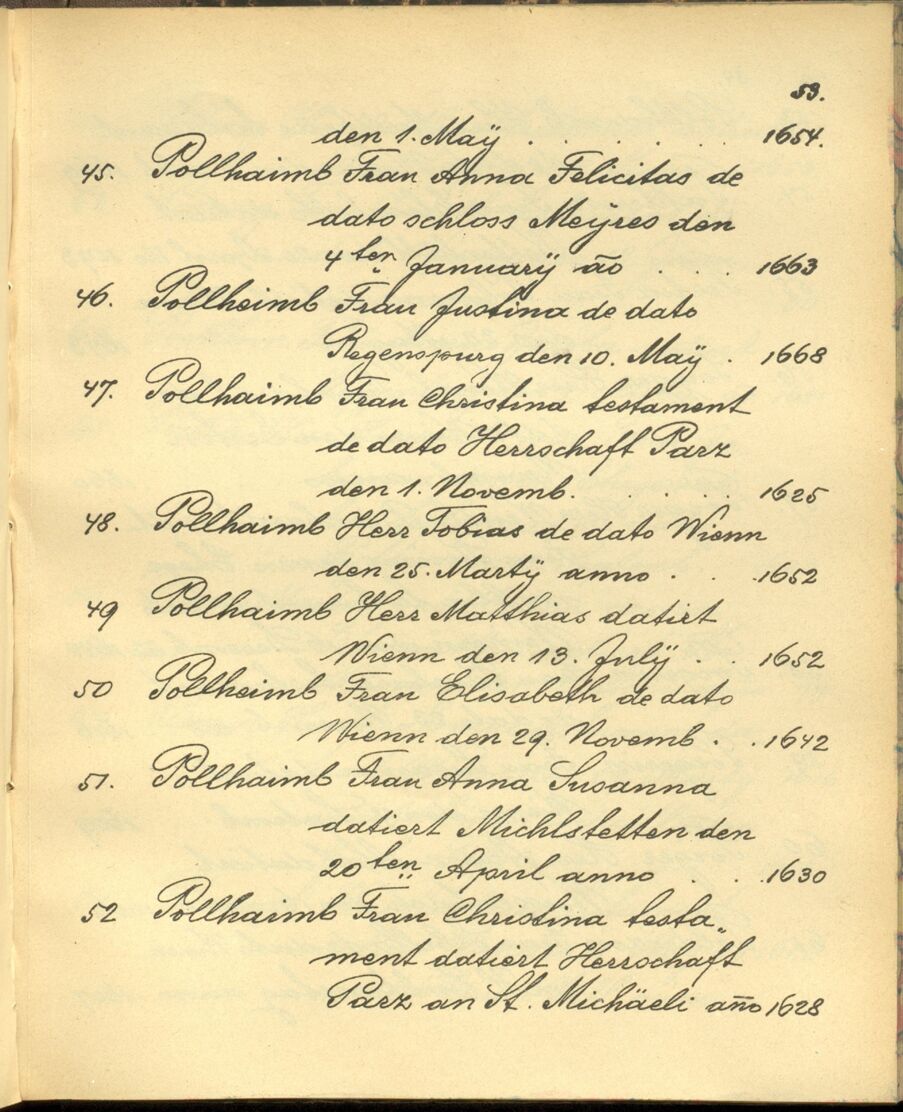 53.
den 1. Maÿ . . . . . . 1654.
45. Pollhaimb Frau Anna Felicitas de
dato schloss Meÿres den
4ten Januarÿ ão . . . 1663
46. Pollheimb Frau Justina de dato
Regenspurg den 10. Maÿ . 1668
47. Pollhaimb Frau Christina testament
de dato Herrschaft Parz
den 1. Novemb. . . . . . 1625
48. Pollhaimb Herr Tobias de dato Wienn
den 25. Martÿ anno . . . 1652
49 Pollhaimb Herr Matthias datirt
Wienn den 13. Julÿ . . 1652
50 Pollheimb Frau Elisabeth de dato
Wienn den 29. Novemb . . 1642
51. Pollhaimb Frau Anna Susanna
datiert Michlstetten den
20ten April anno . . . 1630
52 Pollhaimb Frau Christina testa„
ment datiert Herrschaft
Parz an St. Michäeli año 1628